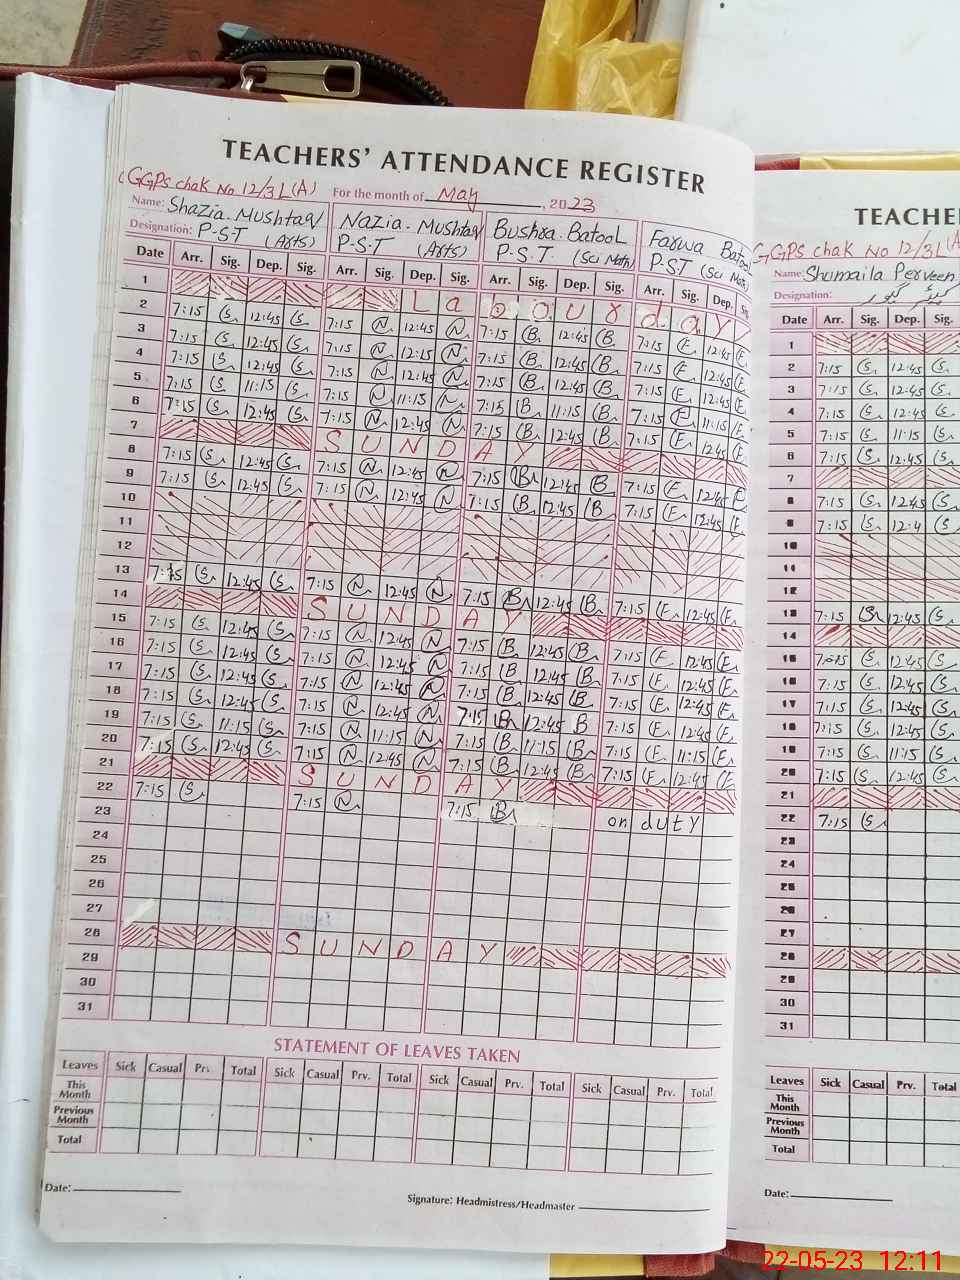 TEACHERS' ATTENDANCE REGISTER
GGPS chak No 12/3L(A) For the month of May, 2023
Name: Shazia. Mushtaq Nazia. Mushtaq Bushra. Batool Farwa Batool
Designation: P.S.T (Arts) P.S.T (Arts) P.S.T. (Sci Math) PST (Sci Math)
Date Arr. Sig. Dep. Sig. Arr. Sig. Dep. Sig. Arr. Sig. Dep. Sig. Arr. Sig. Dep.
1 Labour day
2 7:15 S 12:45 S 7:15 N 12:45 N 7:15 B 12:45 B 7:15 F 12:45 F
3 7:15 S 12:45 S 7:15 N 12:15 N 7:15 B 12:45 B 7:15 F 12:45 F
4 7:15 S 12:45 S 7:15 N 12:45 N 7:15 B 12:45 B 7:15 F 12:45 F
5 7:15 S 11:15 S 7:15 N 11:15 N 7:15 B 11:15 B 7:15 F 11:15 F
6 7:15 S 12:45 S 7:15 N 12:45 N 7:15 B 12:45 B 7:15 F 12:45 F
7 SUNDAY
8 7:15 S 12:45 S 7:15 N 12:45 N 7:15 B 12:45 B 7:15 F 12:45 F
9 7:15 S 12:45 S 7:15 N 12:45 N 7:15 B 12:45 B 7:15 F 12:45 F
10
11
12
13 7:15 S 12:45 S 7:15 N 12:45 N 7:15 B 12:45 B 7:15 F 12:45 F
14 SUNDAY
15 7:15 S 12:45 S 7:15 N 12:45 N 7:15 B 12:45 B 7:15 F 12:45 F
16 7:15 S 12:45 S 7:15 N 12:45 N 7:15 B 12:45 B 7:15 F 12:45 F
17 7:15 S 12:45 S 7:15 N 12:45 N 7:15 B 12:45 B 7:15 F 12:45 F
18 7:15 S 12:45 S 7:15 N 12:45 N 7:15 B 12:45 B 7:15 F 12:45 F
19 7:15 S 11:15 S 7:15 N 11:15 N 7:15 B 11:15 B 7:15 F 11:15 F
20 7:15 S 12:45 S 7:15 N 12:45 N 7:15 B 12:45 B 7:15 F 12:45 F
21 SUNDAY
22 7:15 S 7:15 N 7:15 B on duty
23
24
25
26
27
28 SUNDAY
29
30
31
STATEMENT OF LEAVES TAKEN
Leaves Sick Casual Prv. Total Sick Casual Prv. Total Sick Casual Prv. Total Sick Casual Prv. Total
This Month
Previous Month
Total
Date:
Signature: Headmistress/Headmaster
TEACHE
GGPS chak No 12/3L(A
Name: Shumaila Perveen
Designation:
Date Arr. Sig. Dep. Sig.
1
2 7:15 S 12:45 S
3 7:15 S 12:45 S
4 7:15 S 12:45 S
5 7:15 S 11:15 S
6 7:15 S 12:45 S
7
8 7:15 S 12:45 S
9 7:15 S 12:4 S
10
11
12
13 7:15 S 12:45 S
14
15 7:15 S 12:45 S
16 7:15 S 12:45 S
17 7:15 S 12:45 S
18 7:15 S 12:45 S
19 7:15 S 11:15 S
20 7:15 S 12:45 S
21
22 7:15 S
23
24
25
26
27
28
29
30
31
Leaves Sick Casual Prv. Total
This Month
Previous Month
Total
Date:
22-05-23 12:11